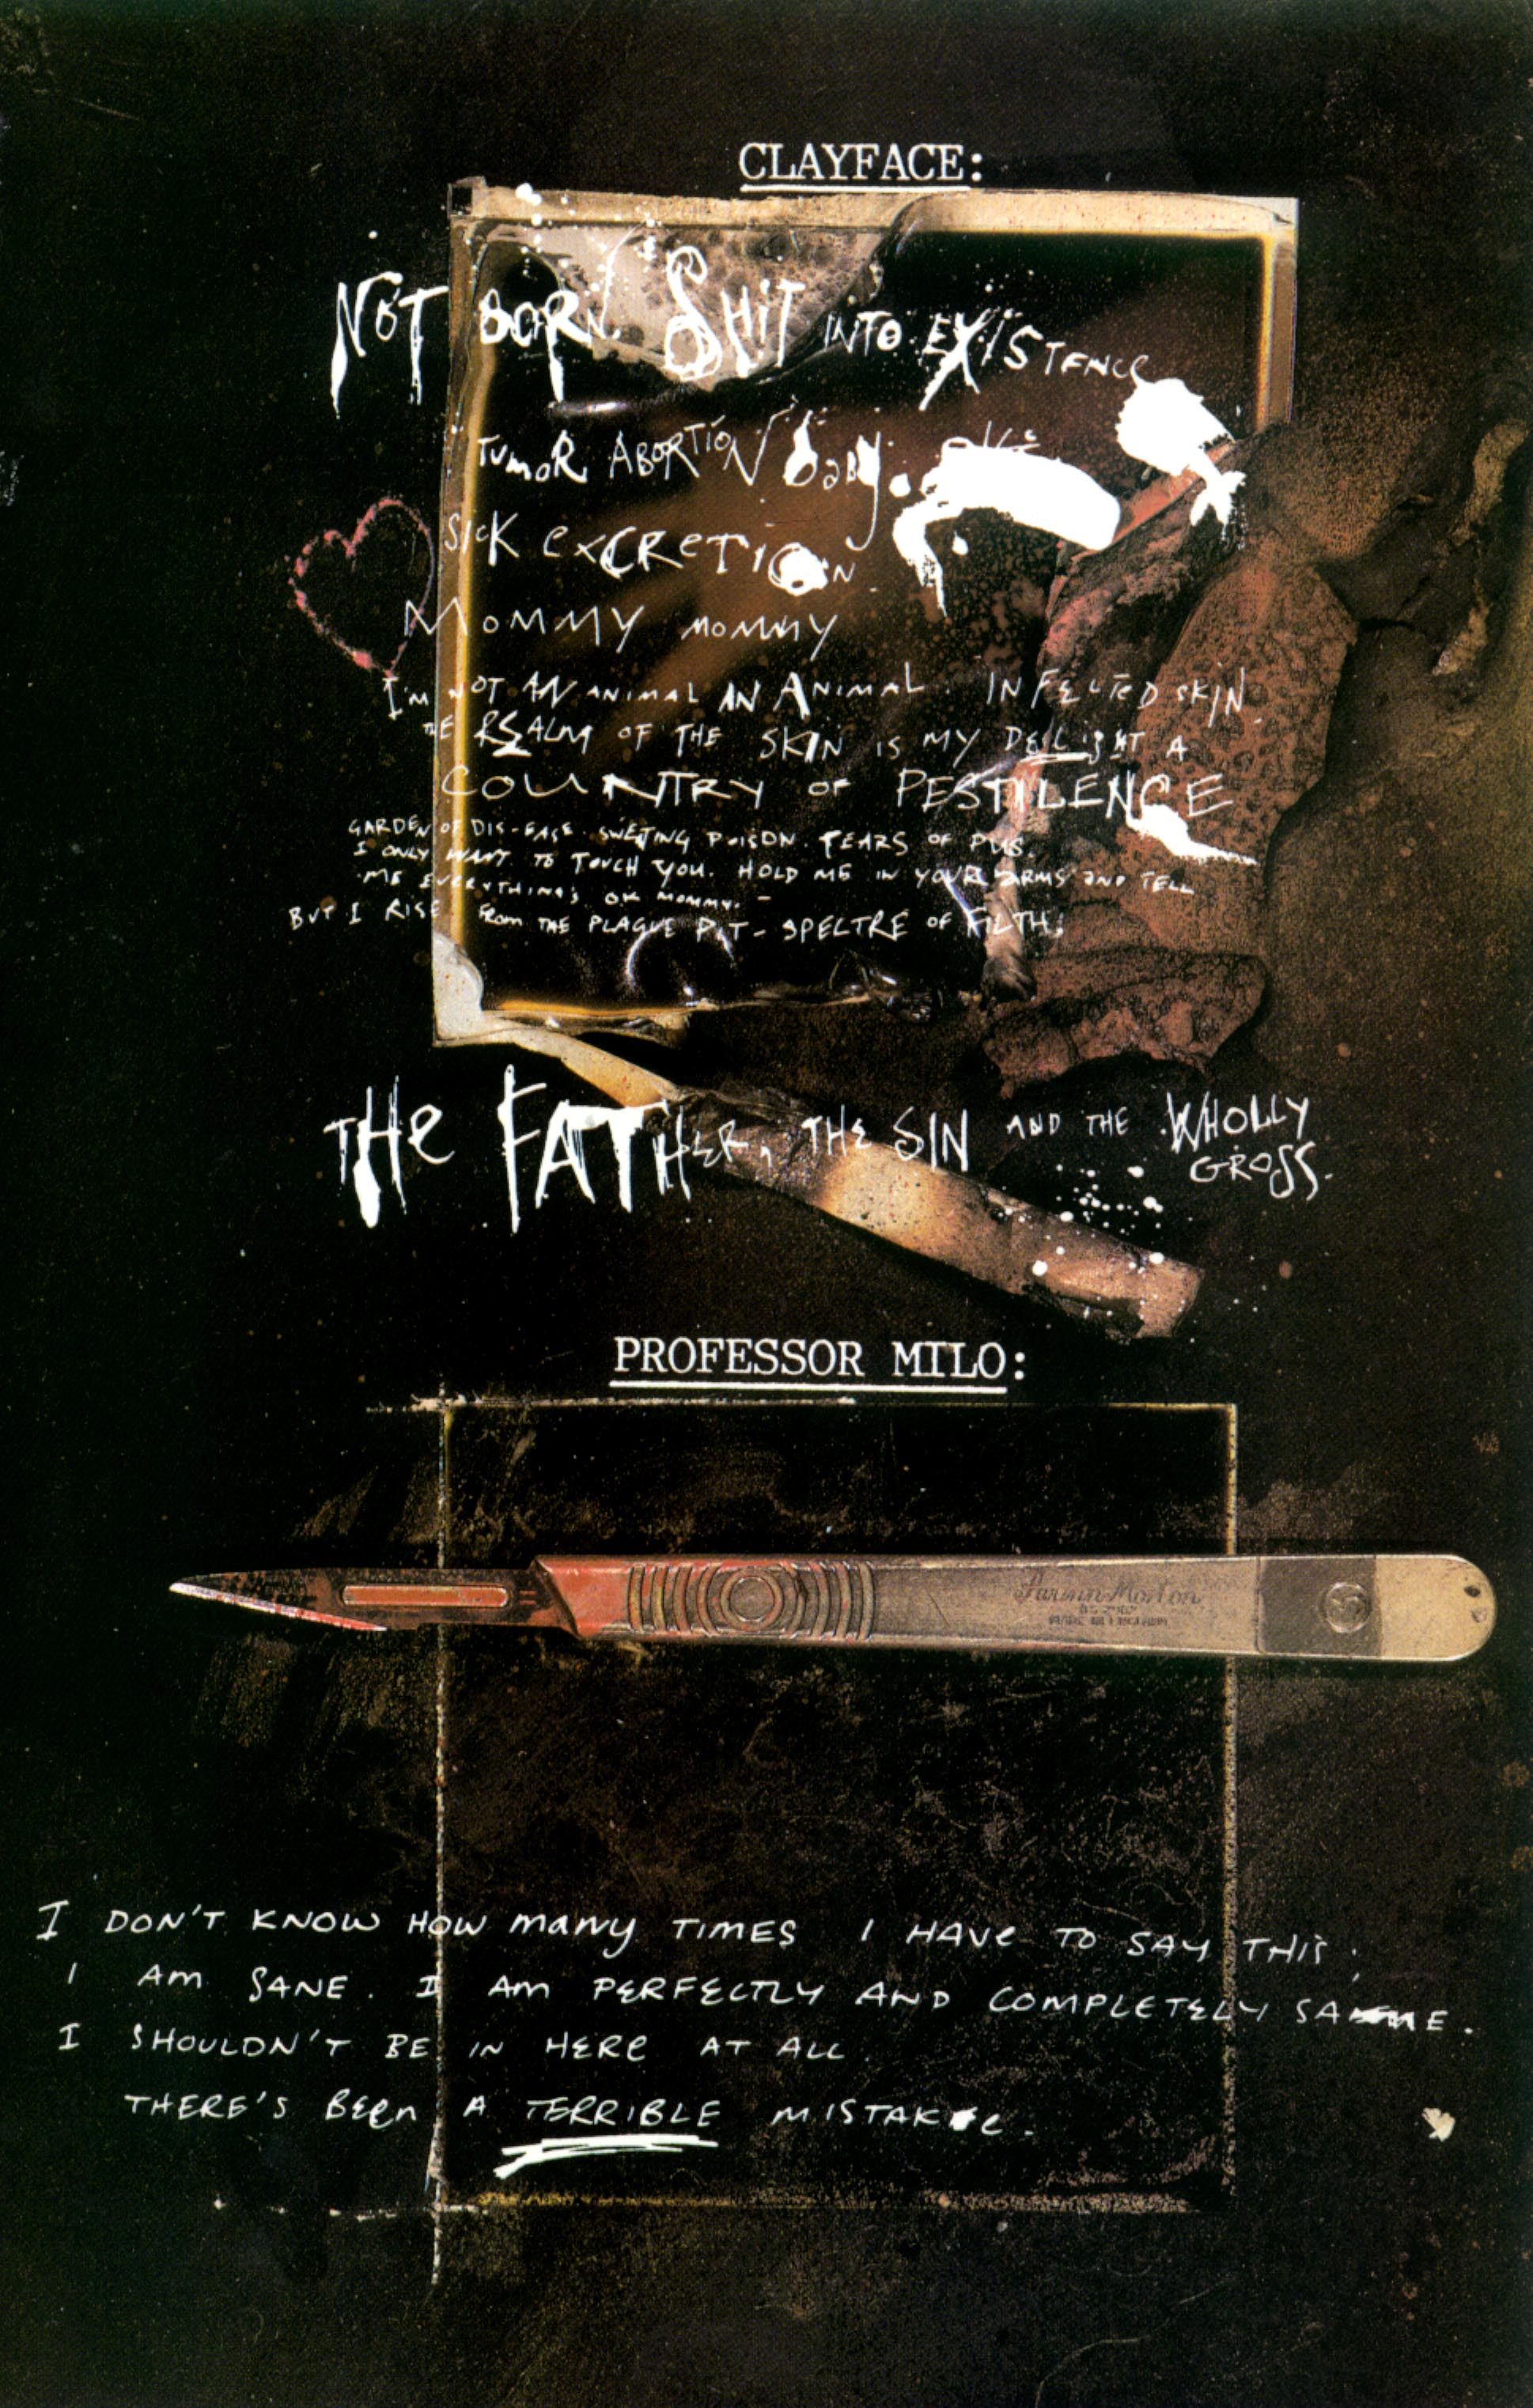 CLAYFACE:
NOT BORN SHIT INTO EXISTENCE
TUMOR ABORTION baby.
SICK EXCRETION
MOMMY MOMMY
I'M NOT AN ANIMAL AN ANIMAL. INFECTED SKIN.
THE REALM OF THE SKIN IS MY DELIGHT A
COUNTRY OF PESTILENCE
GARDEN OF DIS-EASE. SWEATING POISON. TEARS OF PUS.
I ONLY WANT TO TOUCH YOU. HOLD ME IN YOUR ARMS AND TELL
ME EVERYTHING'S OK MOMMY. -
BUT I RISE FROM THE PLAGUE PIT - SPECTRE OF FILTH:
THE FATHER, THE SIN AND THE WHOLLY
GROSS.
PROFESSOR MILO:
I DON'T KNOW HOW many TIMES I HAVE TO SAY THIS;
I AM SANE. I AM PERFECTLY AND COMPLETELY SANE.
I SHOULDN'T BE IN HERE AT ALL.
THERE'S BEEN A TERRIBLE MISTAKE.